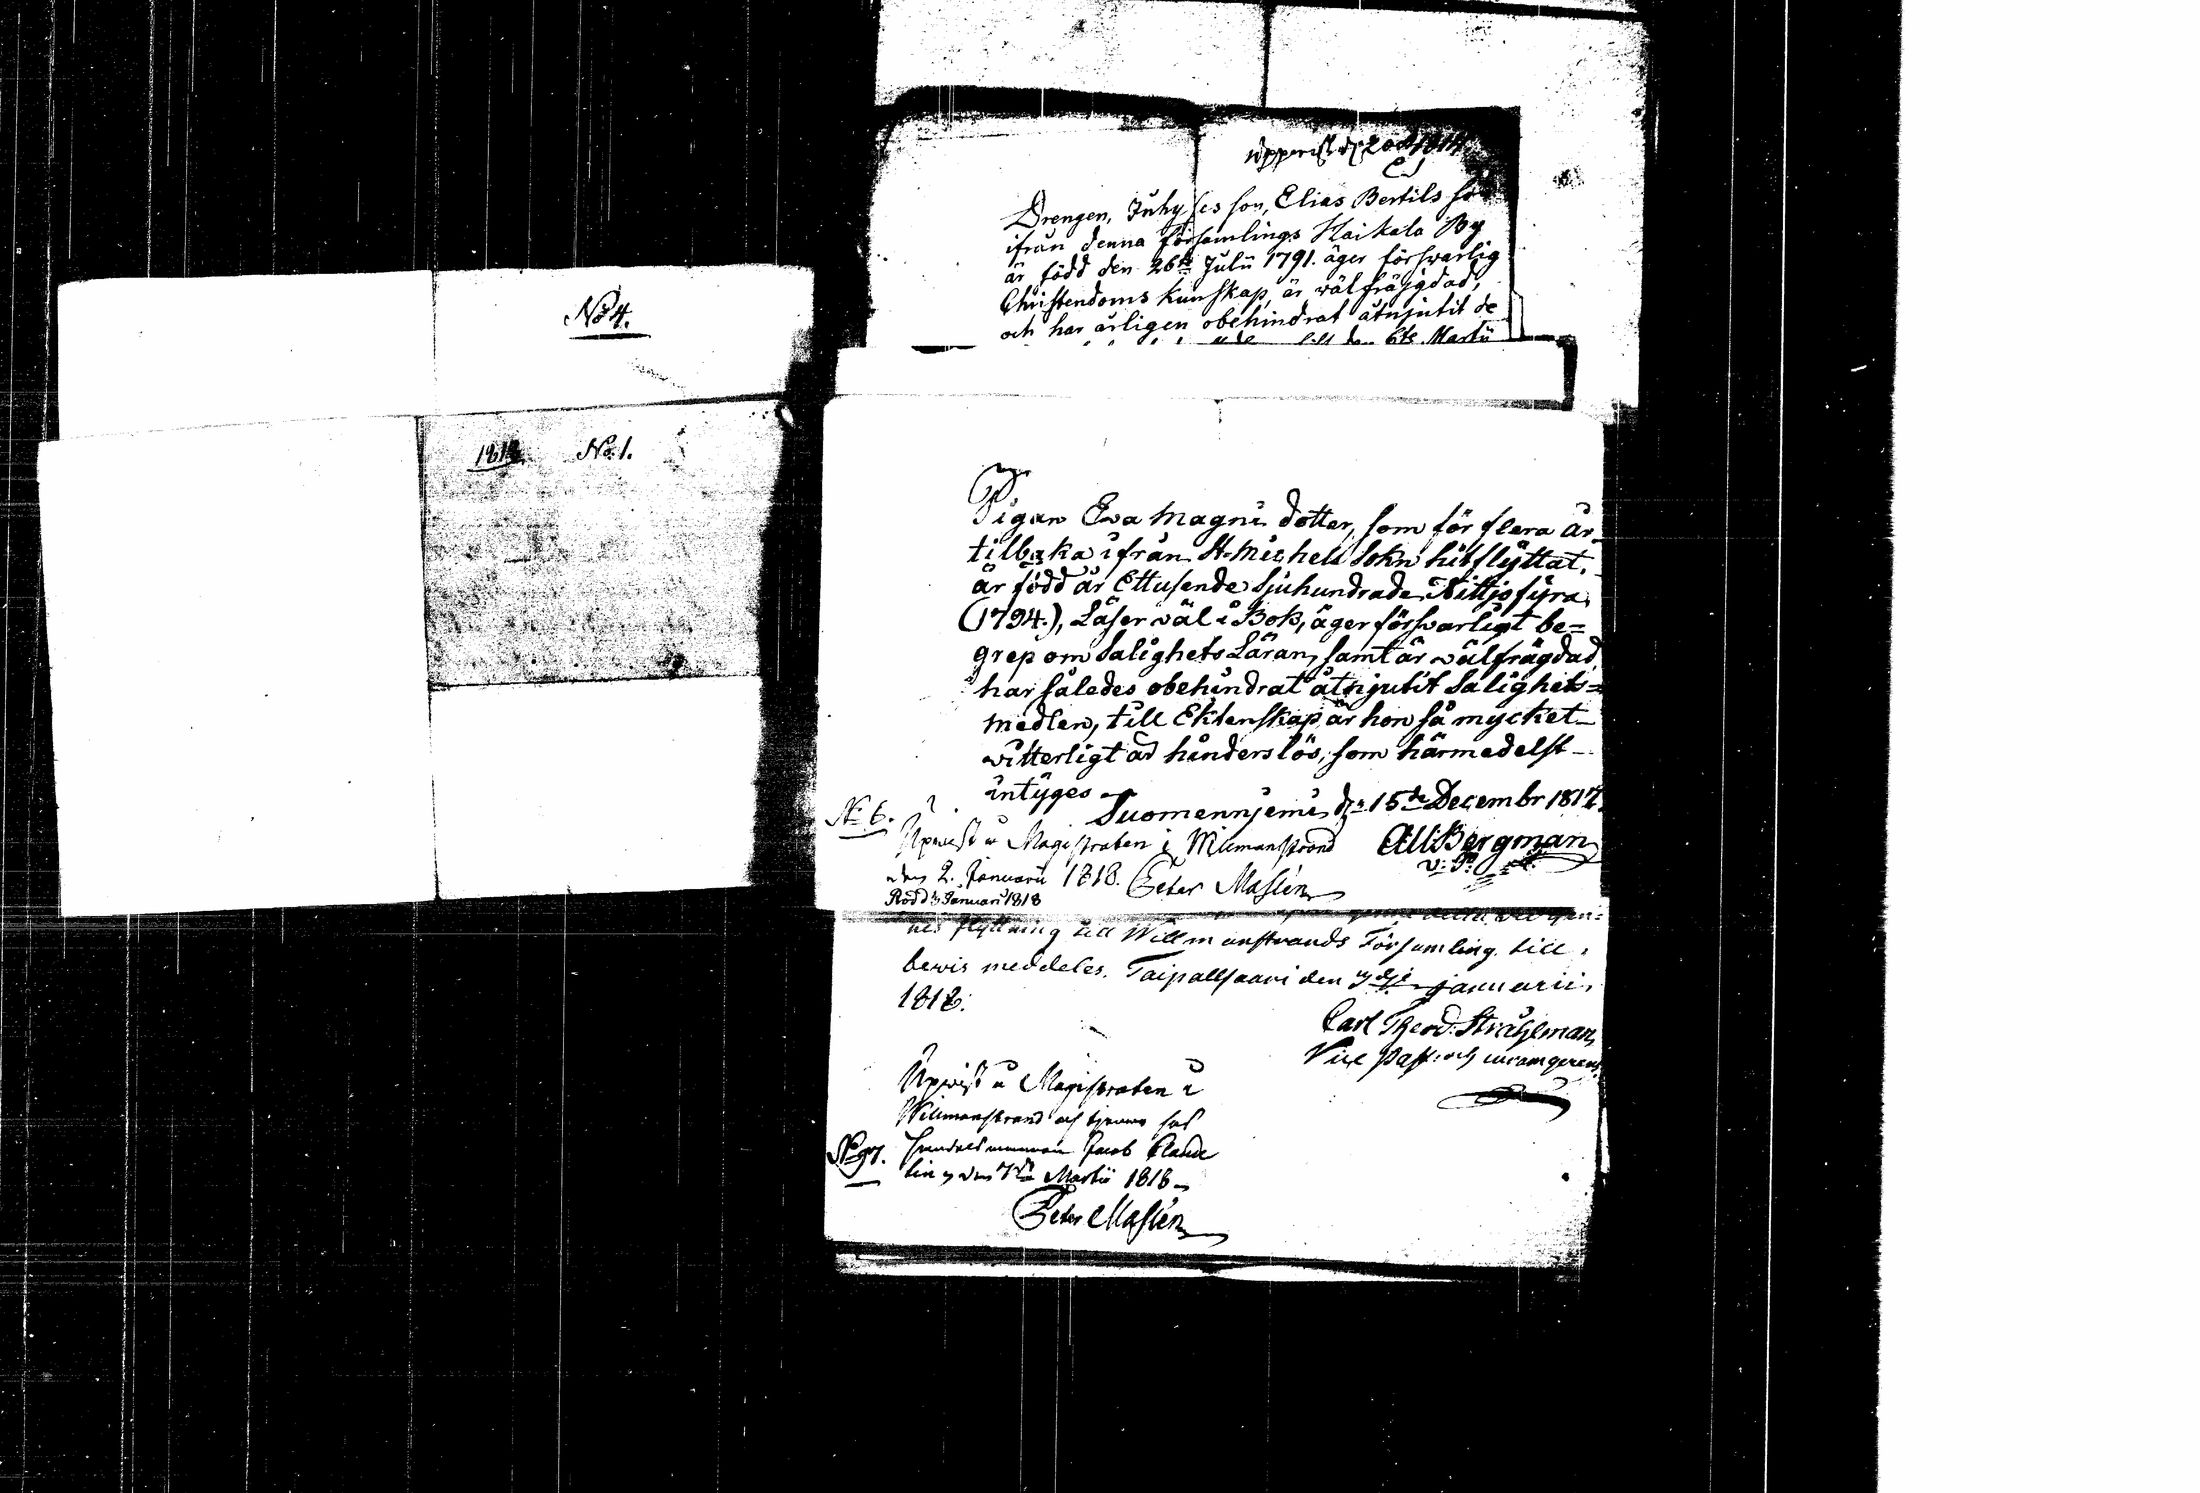 No 4.
1818. No. 1.
Uppvist d. 2 Oct 1814
Drengen, Inhyses son, Elias Bertils son
ifrån denna församlings Haikala By
är född den 26te Julii 1791. äger försvarlig
Christendoms kunskap, är välfräjgdad,
och har årligen obehindrat åtnjutit de
den 6te Martii
Pigan Eva Magni dotter, som för flera år
tilbaka ifrån St. Michels Sokn hitflyttat,
är född år Ettusende Sjuhundrade Nittjofyra
(1794.), Läser väl i Bok, äger försvarligt be=
grep om Salighets Läran, samt är välfrägdad,
har således obehindrat åtnjutit Salighets=
medlen, till Ektenskap är hon så mycket
vitterligt är hinderslös, som härmedelst
intyges
Suomennjemi d. 15de Decembr 1817.
No 6.
Upvist i Magistraten i Wilmanstrand
AW Bergman
v. P.
den 2. Januarii 1818. Peter Maslén
Rödd 3 Januari 1818
nes flyttning till Willmanstrands Församling till
bevis meddeles. Taipallsaari den januarii
1818.
Carl Theod. Stråhlman
Vice Past: och
Upvist i Magistraten i
Willmanstrand och hos
No 97. Handelsmannen Jacob Claude
lin den 7de Martii 1818
Peter Maslén